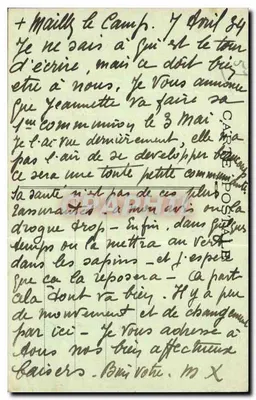 + Mailly le Camp. 7 Avril 34
Je ne sais à qui est le tour
d'écrire, mais ce doit bien
être à nous. Je vous annonce
que Jeannette va faire sa
1ère communion le 3 Mai
Je l'ai vue dernièrement, elle n'a
pas l'air de se developper beaucoup
ce sera une toute petite communiante
Sa santé n'est pas des plus
rassurantes à mon avis on la
drogue trop - Enfin, dans quelque
temps on la mettra au vert
dans les sapins - et j'espère
que ca la reposera - A part
cela tout va bien. Il y a peu
de mouvement et de changement
par ici - Je vous adresse à
tous nos bien affectueux
baisers. Bien votre. M X
CARTE POSTALE